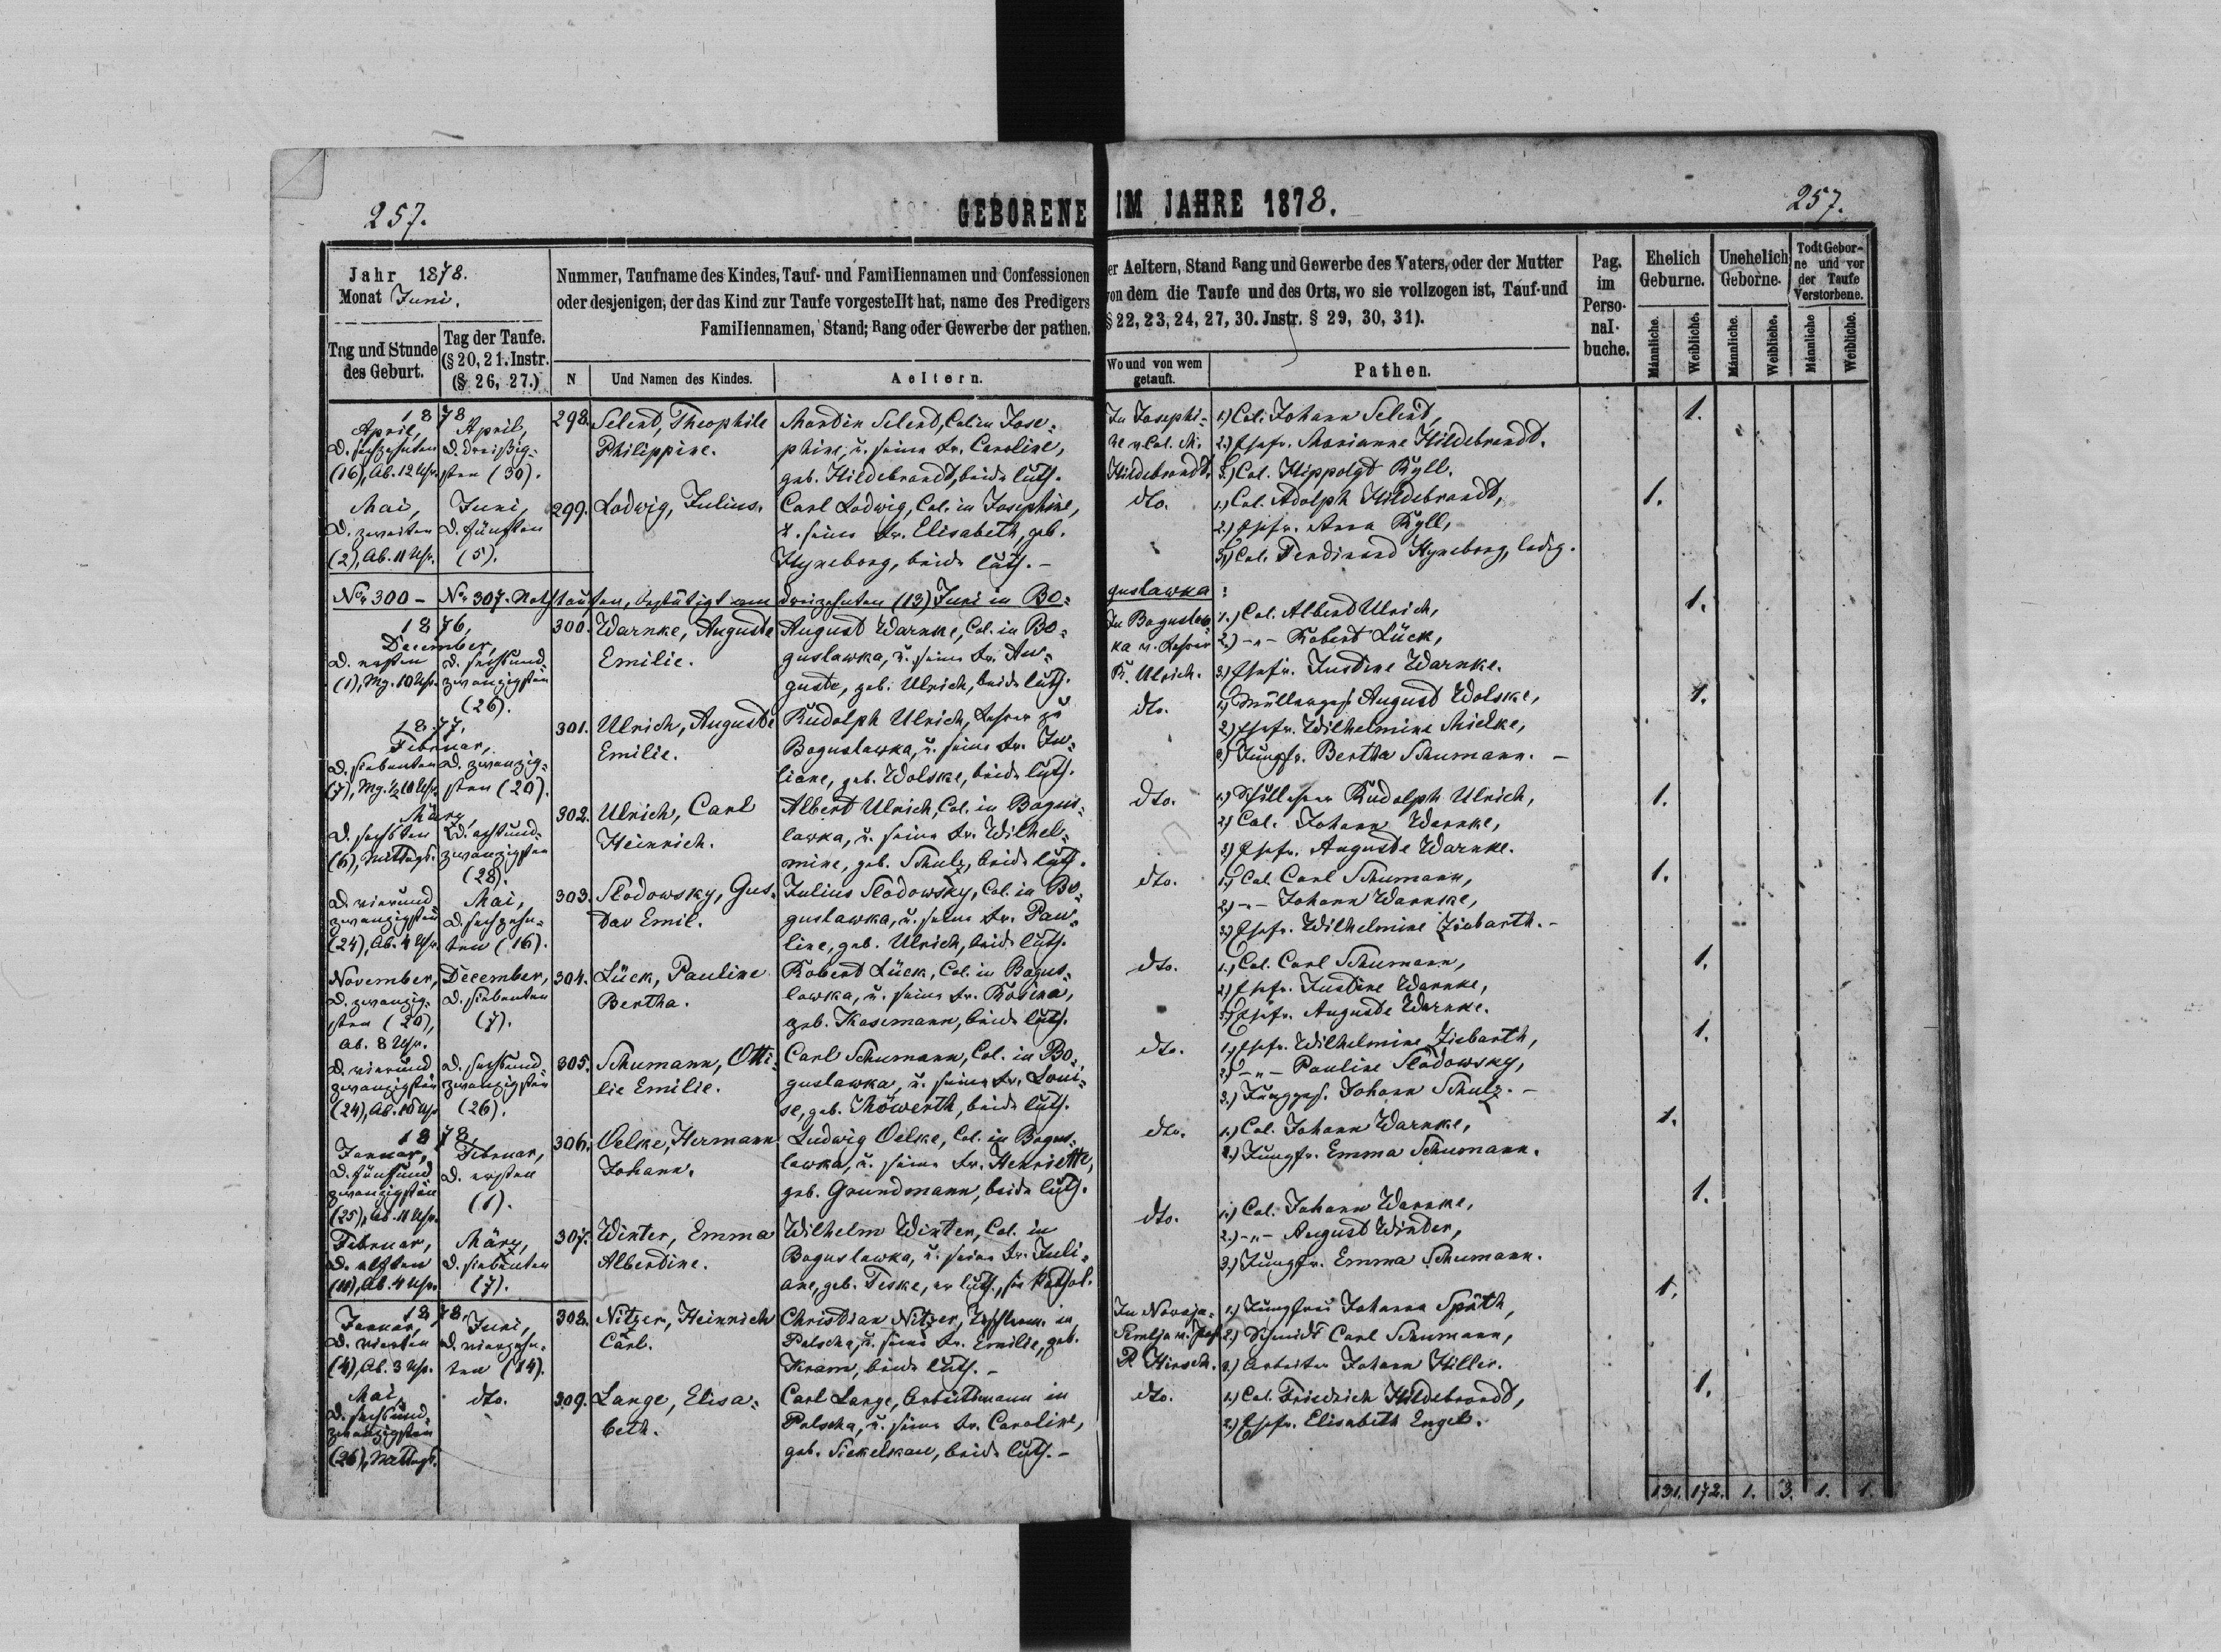 257.
GEBORENE IM JAHRE 1878.
257.
Jahr 1878.
Monat Juni.
Tag und Stunde des Geburt.
Tag der Taufe. (§ 20, 21. Instr. (§ 26, 27.)
Nummer, Taufname des Kindes, Tauf- und Familiennamen und Confessionen
oder desjenigen, der das Kind zur Taufe vorgestellt hat, name des Predigers
Familiennamen, Stand; Rang oder Gewerbe der pathen.
N
Und Namen des Kindes.
Aeltern.
er Aeltern, Stand Rang und Gewerbe des Vaters, oder der Mutter
von dem die Taufe und des Orts, wo sie vollzogen ist, Tauf-und
§ 22, 23, 24, 27, 30. Jnstr. § 29, 30, 31).
Wo und von wem getauft.
Pathen.
Pag. im Perso-nal-buche.
Ehelich Geburne.
Unehelich Geborne.
Todt Gebor-ne und vor der Taufe Verstorbene.
Männliche.
Weibliche.
Männliche.
Weibliche.
Männliche
Weibliche.
1878
April, d. sechzehnten (16), Ab. 12 Uhr.
April, d. dreißig-sten (30).
298.
Selent, Theophile
Philippine.
Martin Selent, Col. in Jose-
phine, u. seine Fr. Caroline,
geb. Hildebrandt, beide luth.
In Josephi-
ne v. Col. M.
Hildebrandt.
1.) Col. Johann Selent,
2.) Ehefr. Marianne Hildebrandt.
3.) Col. Hippolyt Ryll.
1.
Mai, d. zweiten (2), Ab. 11 Uhr.
Juni, d. fünften (5).
299.
Lodwig, Julius.
Carl Lodwig, Col. in Josephine,
u. seine Fr. Elisabeth, geb.
Hyneborg, beide luth. -
dto.
1.) Col. Adolph Hildebrandt,
2.) Ehefr. Anna Ryll,
3.) Col. Ferdinand Hyneborg, ledig.
1.
No 300 - No 307. Nothtaufen, bestätigt am dreizehnten (13) Juni in Bo-
guslawka:
1876,
December,
d. ersten (1), Mg. 10 Uhr.
d. sechsund-zwanzigsten (26).
300.
Warnke, Auguste
Emilie.
August Warnke, Col. in Bo-
guslawka, u. seine Fr. Au-
guste, geb. Ulrich, beide luth.
In Boguslaw-
ka v. Lehrer
R. Ulrich.
1.) Col. Albert Ulrich,
2.) -"- Robert Lück,
3.) Ehefr. Justine Warnke.
1.
1877,
Februar,
d. siebenten (7), Mg. ½10 Uhr.
d. zwanzig-sten (20).
301.
Ulrich, Auguste
Emilie.
Rudolph Ulrich, Lehrer zu
Boguslawka, u. seine Fr. Ju-
liane, geb. Wolske, beide luth.
dto.
1.) Müllerges. August Wolske,
2.) Ehefr. Wilhelmine Mielke,
3.) Jungfr. Bertha Schumann. -
1.
März,
d. sechsten (6), Mittags.
d. achtund-zwanzigsten (28).
302.
Ulrich, Carl
Heinrich.
Albert Ulrich, Col. in Bogus-
lawka, u. seine Fr. Wilhel-
mine, geb. Schulz, beide luth.
dto.
1.) Schullehrer Rudolph Ulrich,
2.) Col. Johann Warnke,
3.) Ehefr. Auguste Warnke.
1.
d. vierund-zwanzigsten (24), Ab. 4 Uhr.
Mai, d. sechzehn-ten (16).
303.
Slodowsky, Gus-
tav Emil.
Julius Slodowsky, Col. in Bo-
guslawka, u. seine Fr. Pau-
line, geb. Ulrich, beide luth.
dto.
1.) Col. Carl Schumann,
2.) -"- Johann Warnke,
3.) Ehefr. Wilhelmine Ziebarth. -
1.
November, d. zwanzig-sten (20), Ab. 8 Uhr.
December, d. siebenten (7).
304.
Lück, Pauline
Bertha.
Robert Lück, Col. in Bogus-
lawka, u. seine Fr. Rosina,
geb. Kasemann, beide luth.
dto.
1.) Col. Carl Schumann,
2.) Ehefr. Justine Warnke,
3.) Ehefr. Auguste Warnke.
1.
d. vierund-zwanzigsten (24), Ab. 10 Uhr
d. sechsund-zwanzigsten (26).
305.
Schumann, Otti-
lie Emilie.
Carl Schumann, Col. in Bo-
guslawka, u. seine Fr. Loui-
se, geb. Röwerth, beide luth.
dto.
1.) Ehefr. Wilhelmine Ziebarth,
2.) -"- Pauline Slodowsky,
3.) Jungges. Johann Schulz. -
1.
1878,
Januar, d. fünfund zwanzigsten (25), Ab. 11 Uhr.
Februar, d. ersten (1).
306.
Oelke, Hermann
Johann.
Ludwig Oelke, Col. in Bogus-
lawka, u. seine Fr. Henriette,
geb. Grundmann, beide luth.
dto.
1.) Col. Johann Warnke,
2.) Jungfr. Emma Schumann.
1.
Februar, d. elften (11), Ab. 4 Uhr.
März, d. siebenten (7).
307.
Winter, Emma
Albertine.
Wilhelm Winter, Col. in
Boguslawka, u. seine Fr. Juli-
ane, geb. Teske, er luth., sie kathol.
dto.
1.) Col. Johann Warnke,
2.) -"- August Winter,
3.) Jungfr. Emma Schumann.
1.
1878,
Januar, d. vierten (4), Ab. 3 Uhr.
Juni, d. vierzehn-ten (14).
308.
Nitzer, Heinrich
Carl.
Christian Nitzer, in
Polscha, u. seine Fr. Emilie, geb.
Kram, beide luth. -
In Novaja-
Semlja v. Past
P. Hirsch.
1.) Jungfrau Johanna Späth,
2.) Schmidt Carl Schumann,
3.) Arbeiter Johann Hiller.
1.
Mai, d. sechsund-zwanzigsten (26), Mittags.
dto.
309.
Lange, Elisa-
beth.
Carl Lange, Arbeitsmann in
Polscha, u. seine Fr. Caroline,
geb. Siekelkau, beide luth. -
dto.
1.) Col. Friedrich Hildebrandt,
2.) Ehefr. Elisabeth Engel.
1.
131. 172. 1. 3. 1. 1.